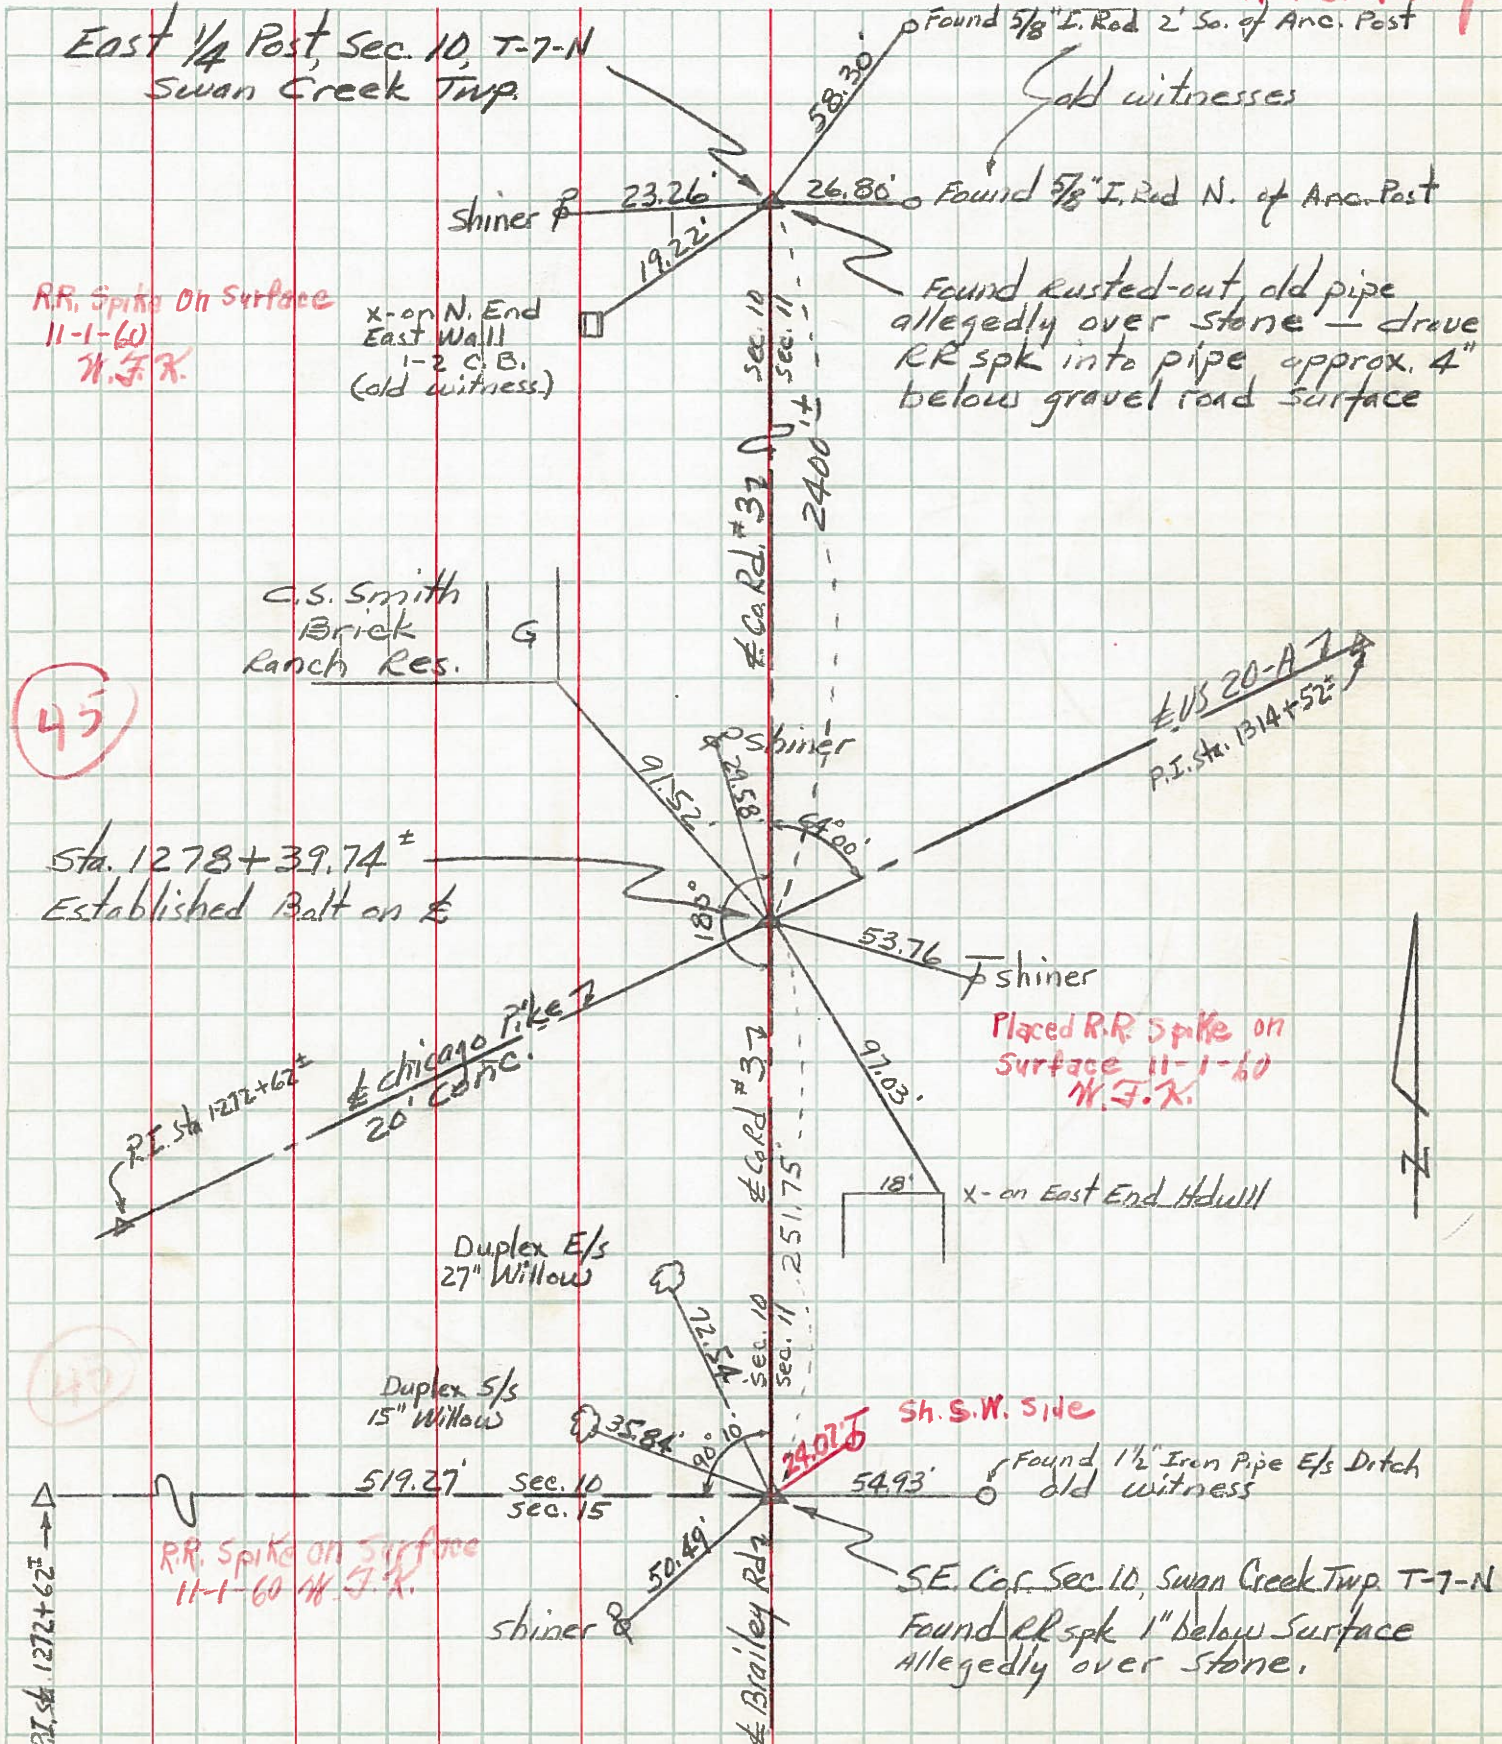 East 1/4 Post, Sec. 10, T-7-N
Swan Creek Twp.
Found 5/8" I. Rod 2' So. of Anc. Post
58.30'
old witnesses
shiner
23.26'
26.80'
Found 5/8" I. Rod N. of Anc. Post
19.22'
R.R. Spike on Surface
11-1-60
W.F.K.
x-on N. End
East Wall
1-2 C.B.
(old witness)
Found Rusted-out, old pipe
allegedly over stone — drove
RR spk into pipe approx. 4"
below gravel road surface
Sec. 10
Sec. 11
2400'±
℄ Co. Rd. #37
C.S. Smith
Brick
Ranch Res.
G
45
℄ US 20-A
P.I. sta. 1314+52±
shiner
91.52'
29.58'
64°00'
Sta. 1278+39.74±
Established Bolt on ℄
180°
53.76
shiner
Placed R.R. Spike on
Surface 11-1-60
W.F.K.
97.03'
℄ Chicago Pike
20' Conc.
P.I. sta 1272+62±
℄ Co Rd #37
251.75'
18'
x-on East End Hdwll
N
Duplex E/s
27" Willow
72.54'
Sec. 10
Sec. 11
Duplex S/s
15" Willow
35.84'
90°10'
24.02'
Sh. S.W. Side
Found 1½" Iron Pipe E/s Ditch
old witness
519.27'
Sec. 10
Sec. 15
54.93'
R.R. Spike on Surface
11-1-60 W.F.K.
50.49'
shiner
S.E. Cor. Sec 10, Swan Creek Twp. T-7-N
Found RR spk 1" below Surface
Allegedly over Stone.
℄ Brailey Rd
P.I. sta. 1272+62±